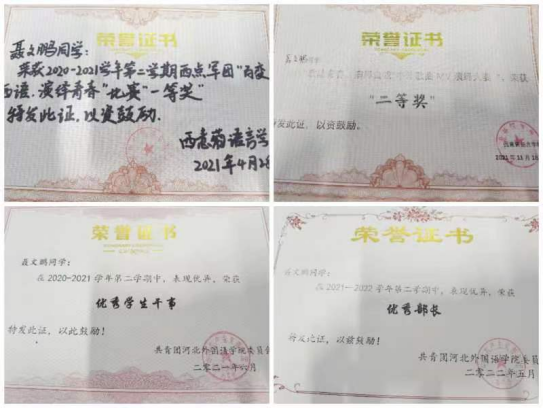 荣誉证书
聂文鹏同学:
荣获2020-2021学年第二学期西点军团"
语.演绎青春"比赛"一等奖"
特发此证,以资鼓励.
2021年4月28
荣誉证书
"二等奖"
发此证,以资鼓励。
荣誉证书
聂文鹏同学:
在2020-2021学年第二学期中,表现优异,荣获
优秀学生干事
特发此证,以此鼓励!
共青团河北外国语学院委员会
二零二一年六月
荣誉证书
聂文鹏同学:
在2021-2022学年第二学期中,表现优异,荣获
优秀部长
特发此证,以兹鼓励!
共青团河北外国语学院委
二零二二年五月